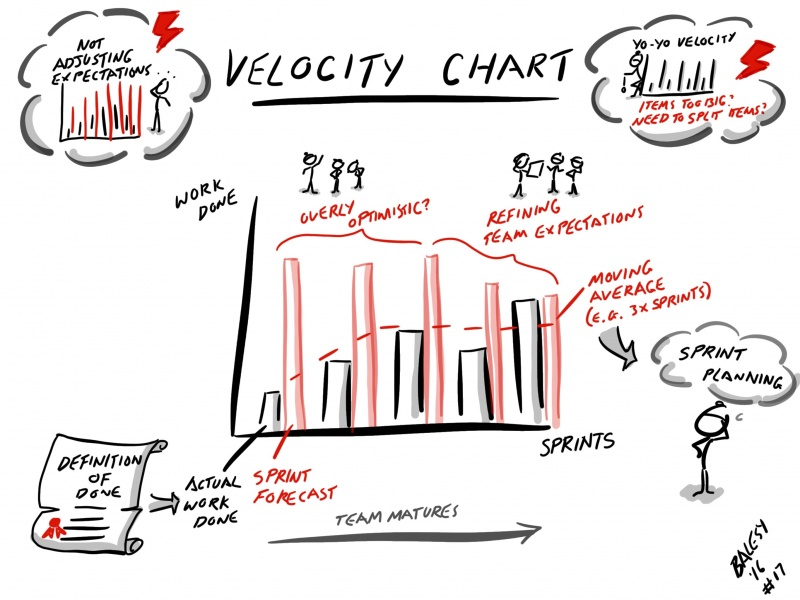 NOT
ADJUSTING
EXPECTATIONS
VELOCITY CHART
YO-YO VELOCITY
ITEMS TOO BIG?
NEED TO SPLIT ITEMS?
WORK
DONE
OVERLY OPTIMISTIC?
REFINING
TEAM EXPECTATIONS
MOVING
AVERAGE
(E.G. 3X SPRINTS)
SPRINT
PLANNING
SPRINTS
DEFINITION
OF
DONE
ACTUAL
WORK
DONE
SPRINT
FORECAST
TEAM MATURES
BALESY
'16
#17